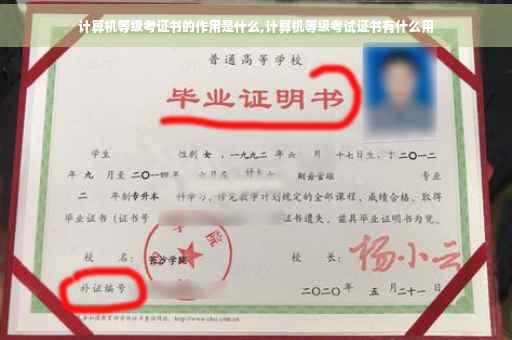 计算机等级考证书的作用是什么,计算机等级考试证书有什么用
普通高等学校
毕业证明书
学生 性别 女，一九九二 年 六 月 十七日生，于 二〇一二
年 九 月至 二〇一四 年 六月在 财务管理 专业
二 年制 专升本 科学习，修完教学计划规定的全部课程，成绩合格，取得
毕业证书（证书号 证书遗失，兹具毕业证明书为凭。
校 名： 长沙学院 校 长： 杨小云
补证编号
二〇二〇年 五 月 二十一 日
http://www.chsi.com.cn